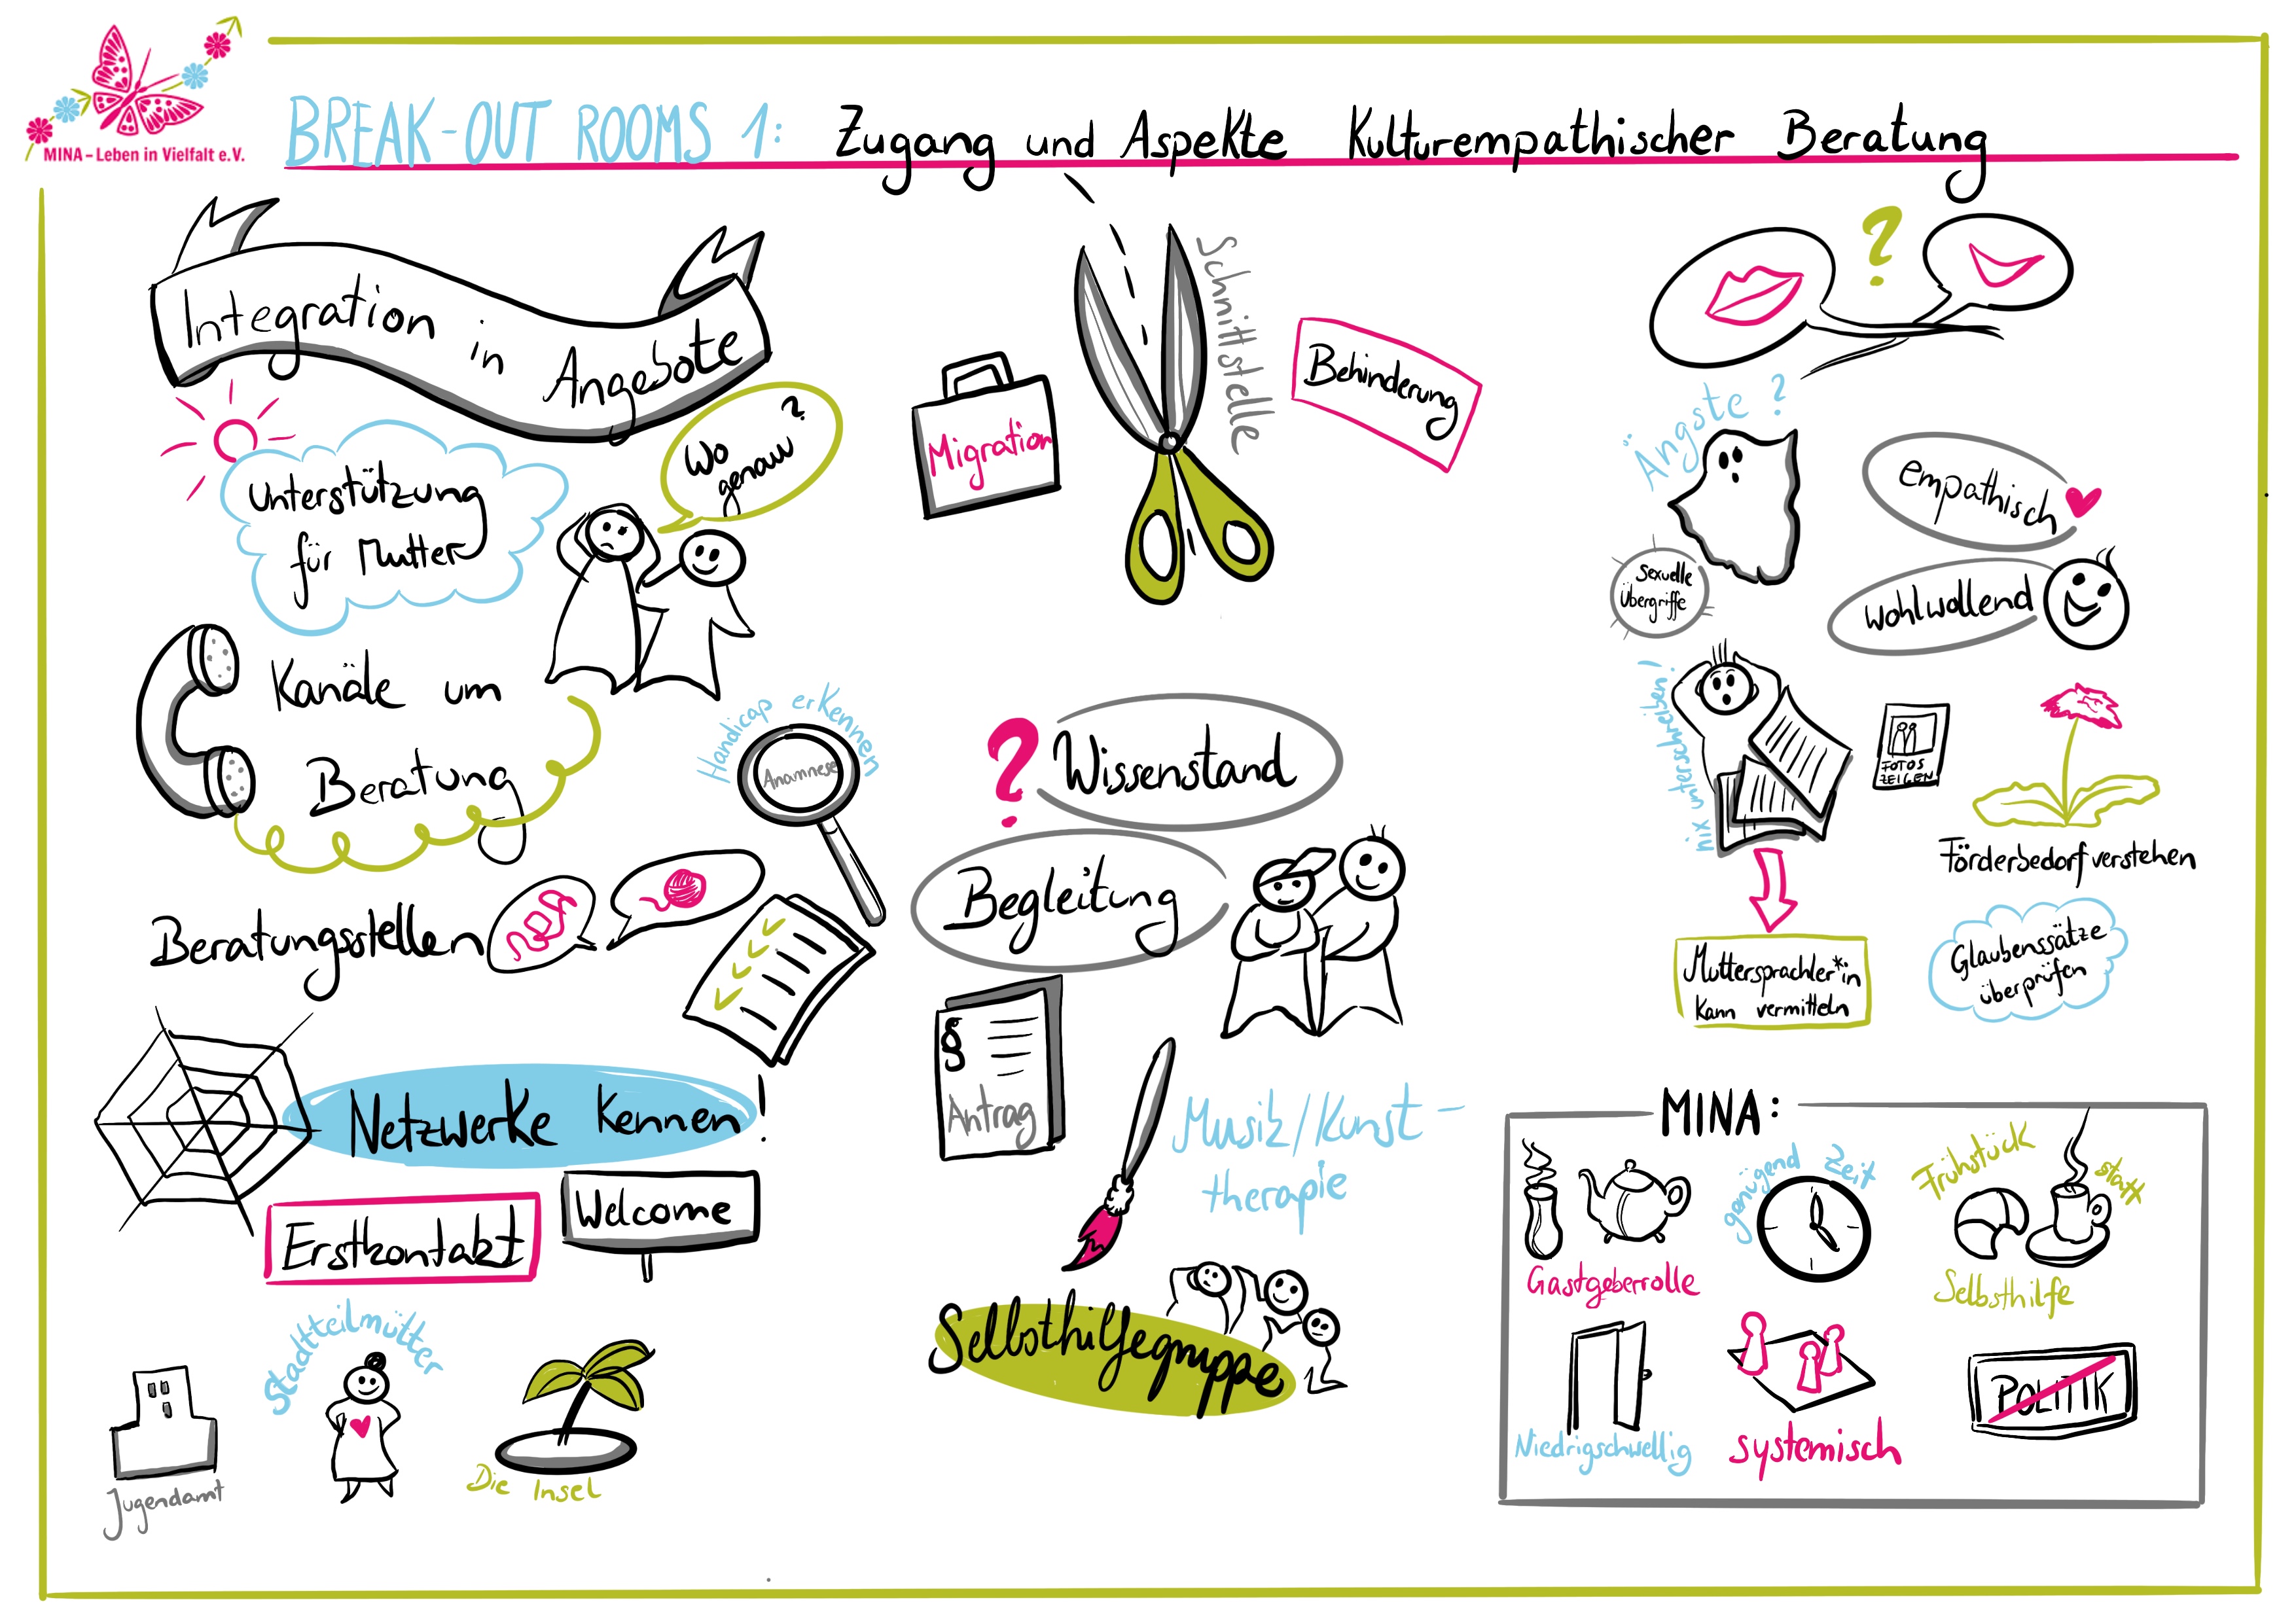 MINA – Leben in Vielfalt e.V.
BREAK-OUT ROOMS 1: Zugang und Aspekte Kulturempathischer Beratung
Integration in Angebote
Unterstützung
für Mutter
Wo
genau?
Kanäle um
Beratung
Handicap erkennen
Anamnese
Beratungsstellen
Netzwerke kennen!
Erstkontakt
Welcome
Jugendamt
Stadtteilmütter
Die Insel
Migration
Schnittstelle
Behinderung
? Wissenstand
Begleitung
§
Antrag
Musik/Kunst-
therapie
Selbsthilfegruppe
?
Ängste?
empathisch
sexuelle
Übergriffe
wohlwollend
nix unterschreiben!
FOTOS
ZEIGEN
Förderbedarf verstehen
Muttersprachler*in
kann vermitteln
Glaubenssätze
überprüfen
MINA:
Gastgeberrolle
genügend Zeit
Frühstück
statt
Selbsthilfe
Niedrigschwellig
systemisch
POLITIK